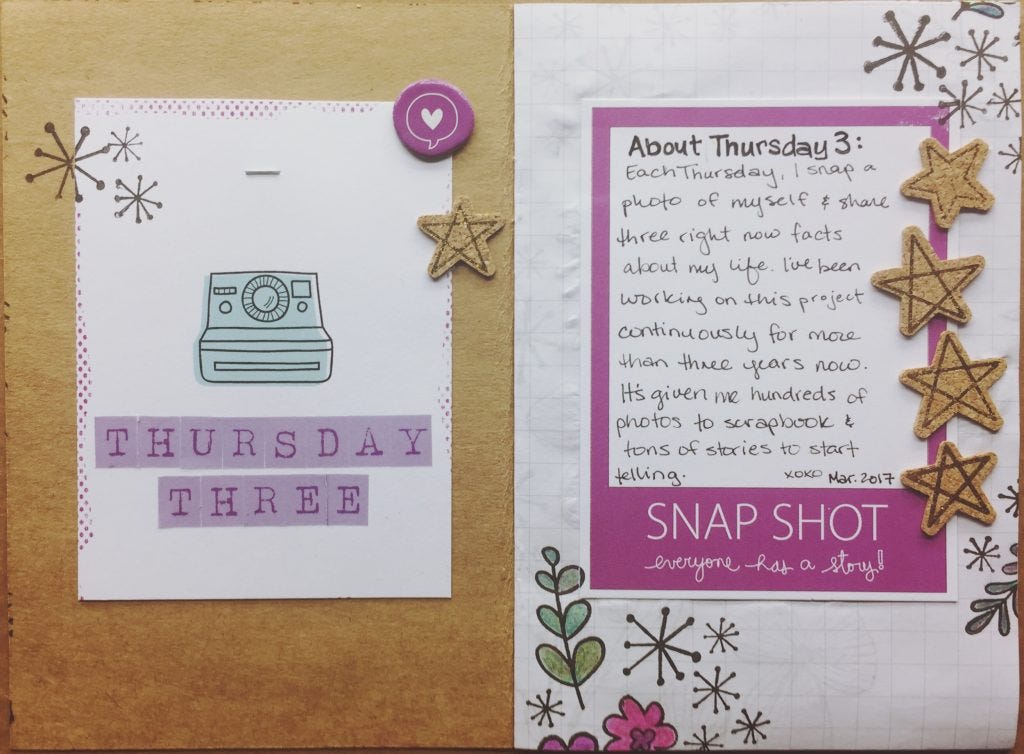 THURSDAY
THREE
About Thursday 3:
Each Thursday, I snap a
photo of myself & share
three right now facts
about my life. I've been
working on this project
continuously for more
than three years now.
It's given me hundreds of
photos to scrapbook &
tons of stories to start
telling. XOXO Mar. 2017
SNAP SHOT
everyone has a story!